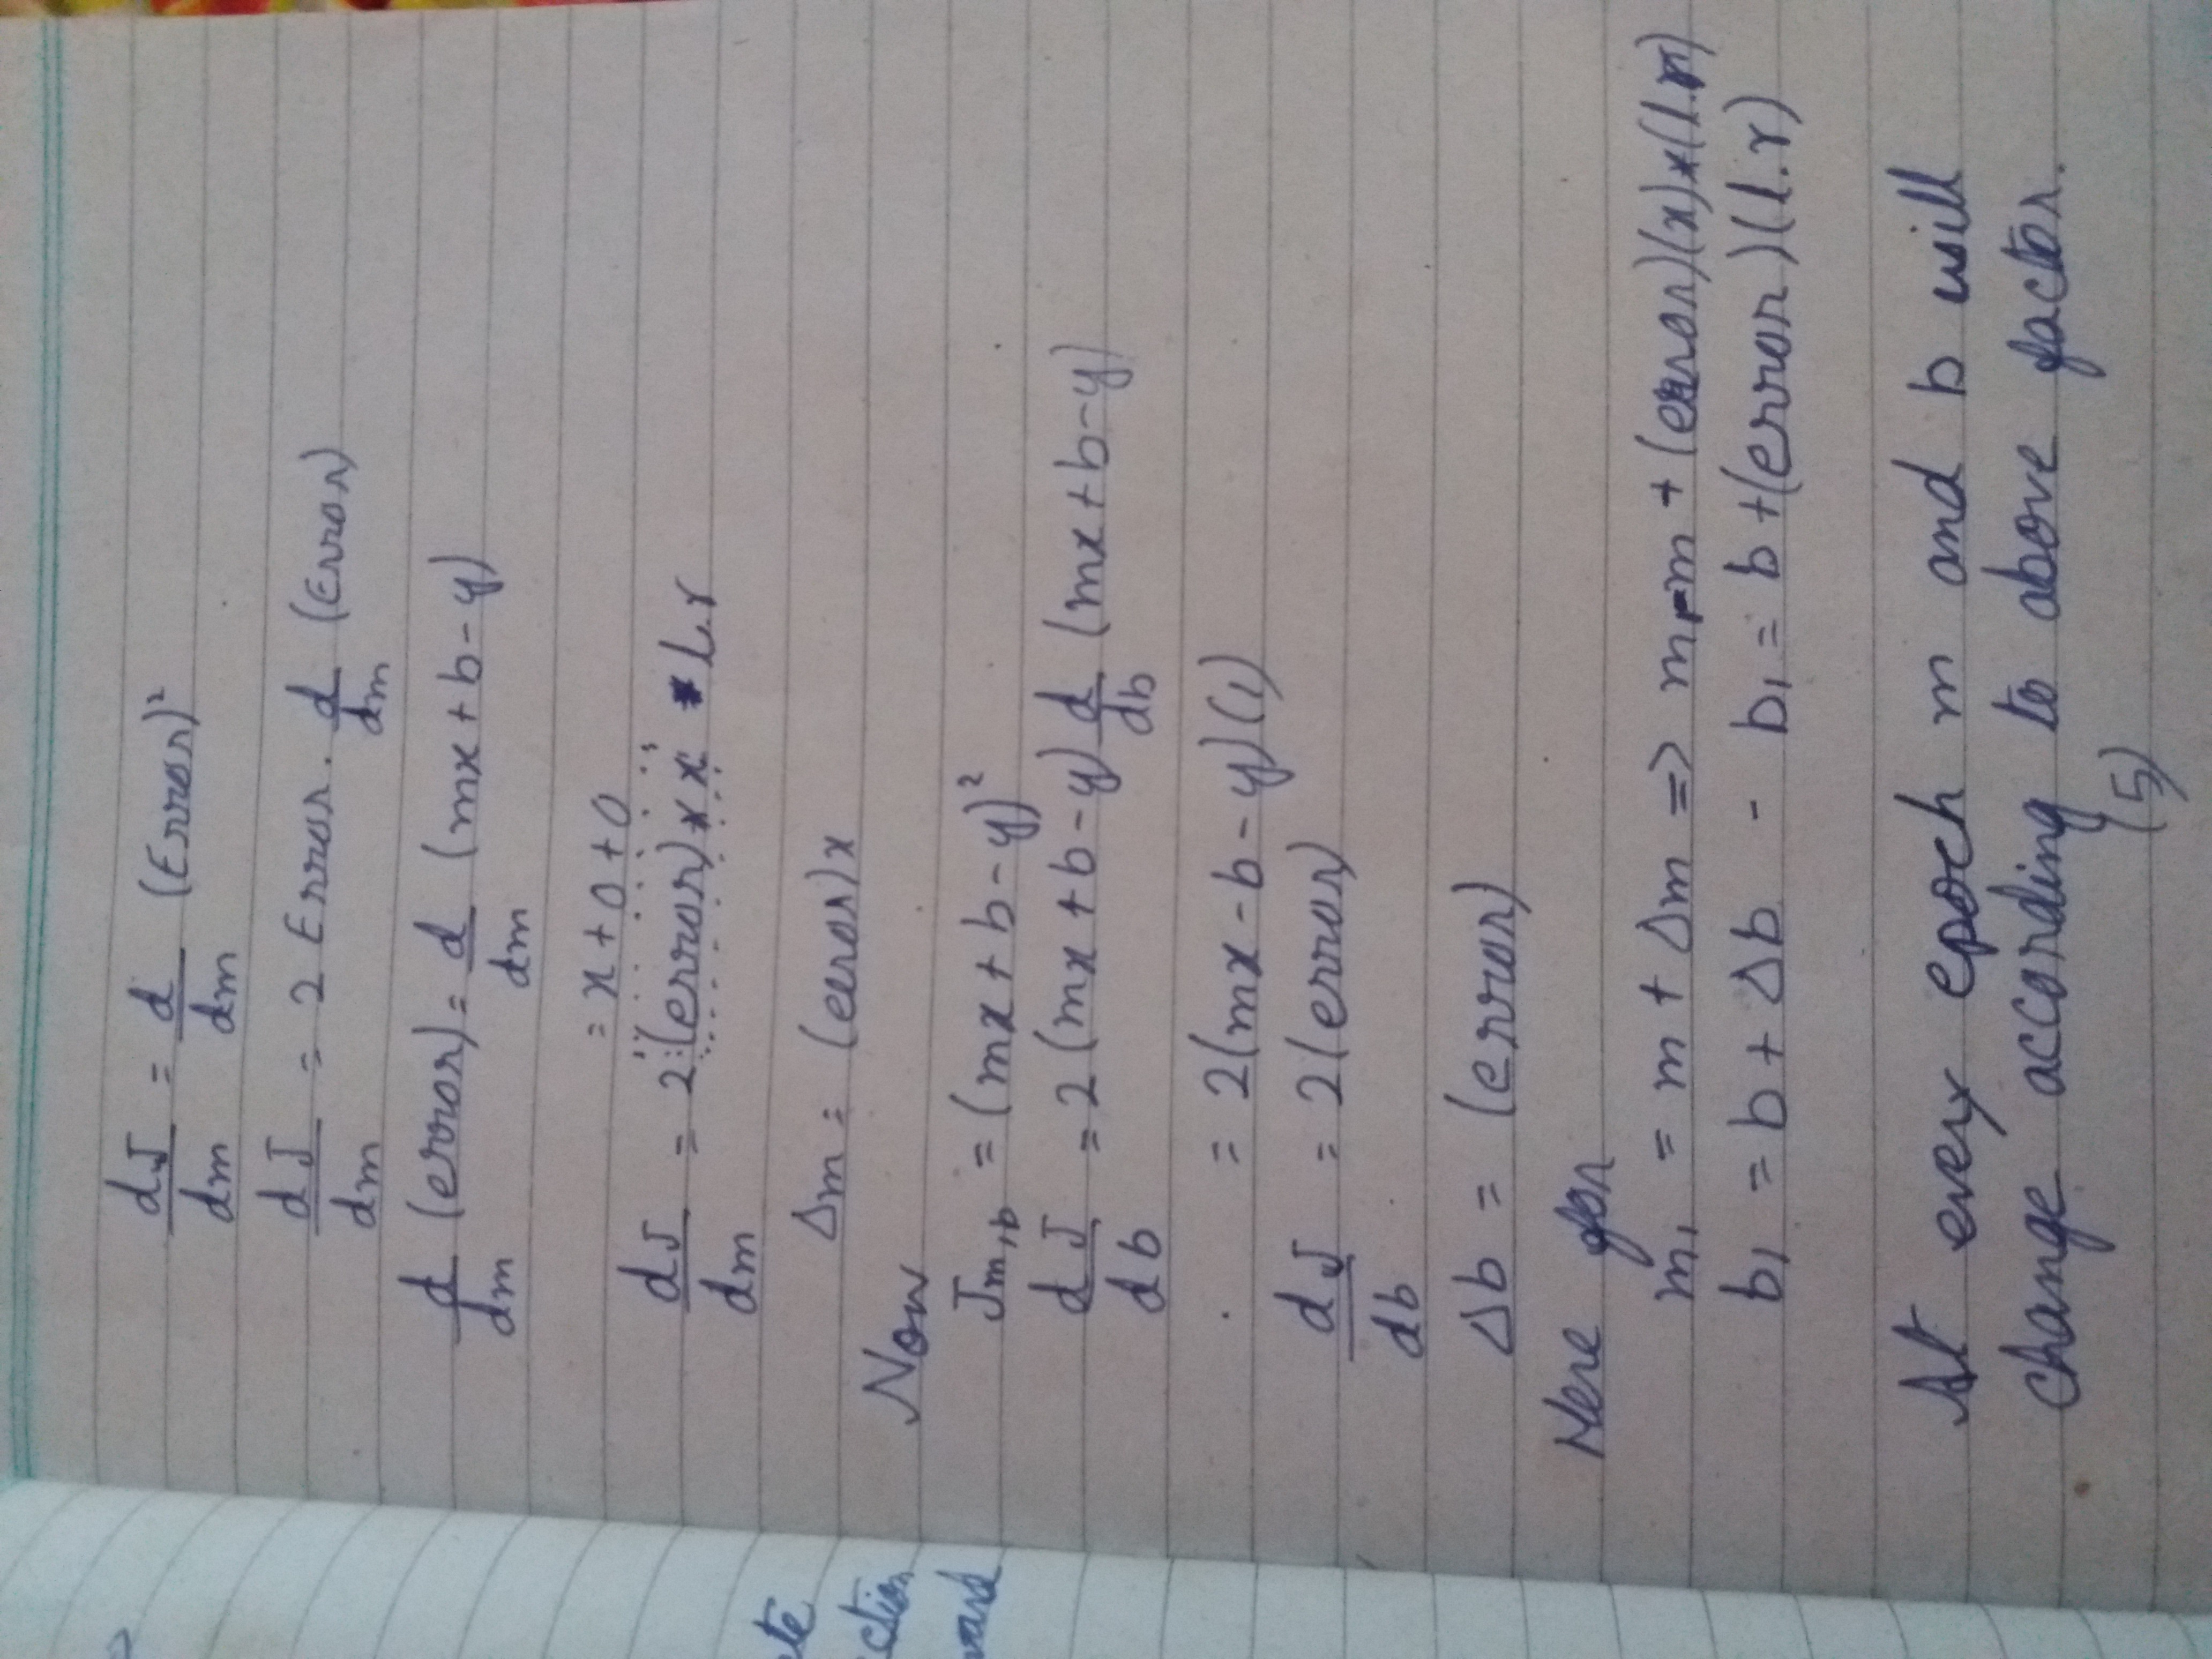 dJ/dm = d/dm (Error)²
dJ/dm = 2 Error . d/dm (Error)
d/dm (error) = d/dm (mx + b - y)
= x + 0 + 0
dJ/dm = 2 (error) * x * L.r
Δm = (error)x
Now
Jm,b = (mx + b - y)²
dJ/db = 2 (mx + b - y) d/db (mx + b - y)
= 2(mx - b - y)(1)
dJ/db = 2(error)
Δb = (error)
Here for
m₁ = m + Δm => m₁=m + (error)(x)*(l.r)
b₁ = b + Δb - b₁ = b +(error)(l.r)
At every epoch m and b will
change according to above factor.
(5)
ete
ction
ward